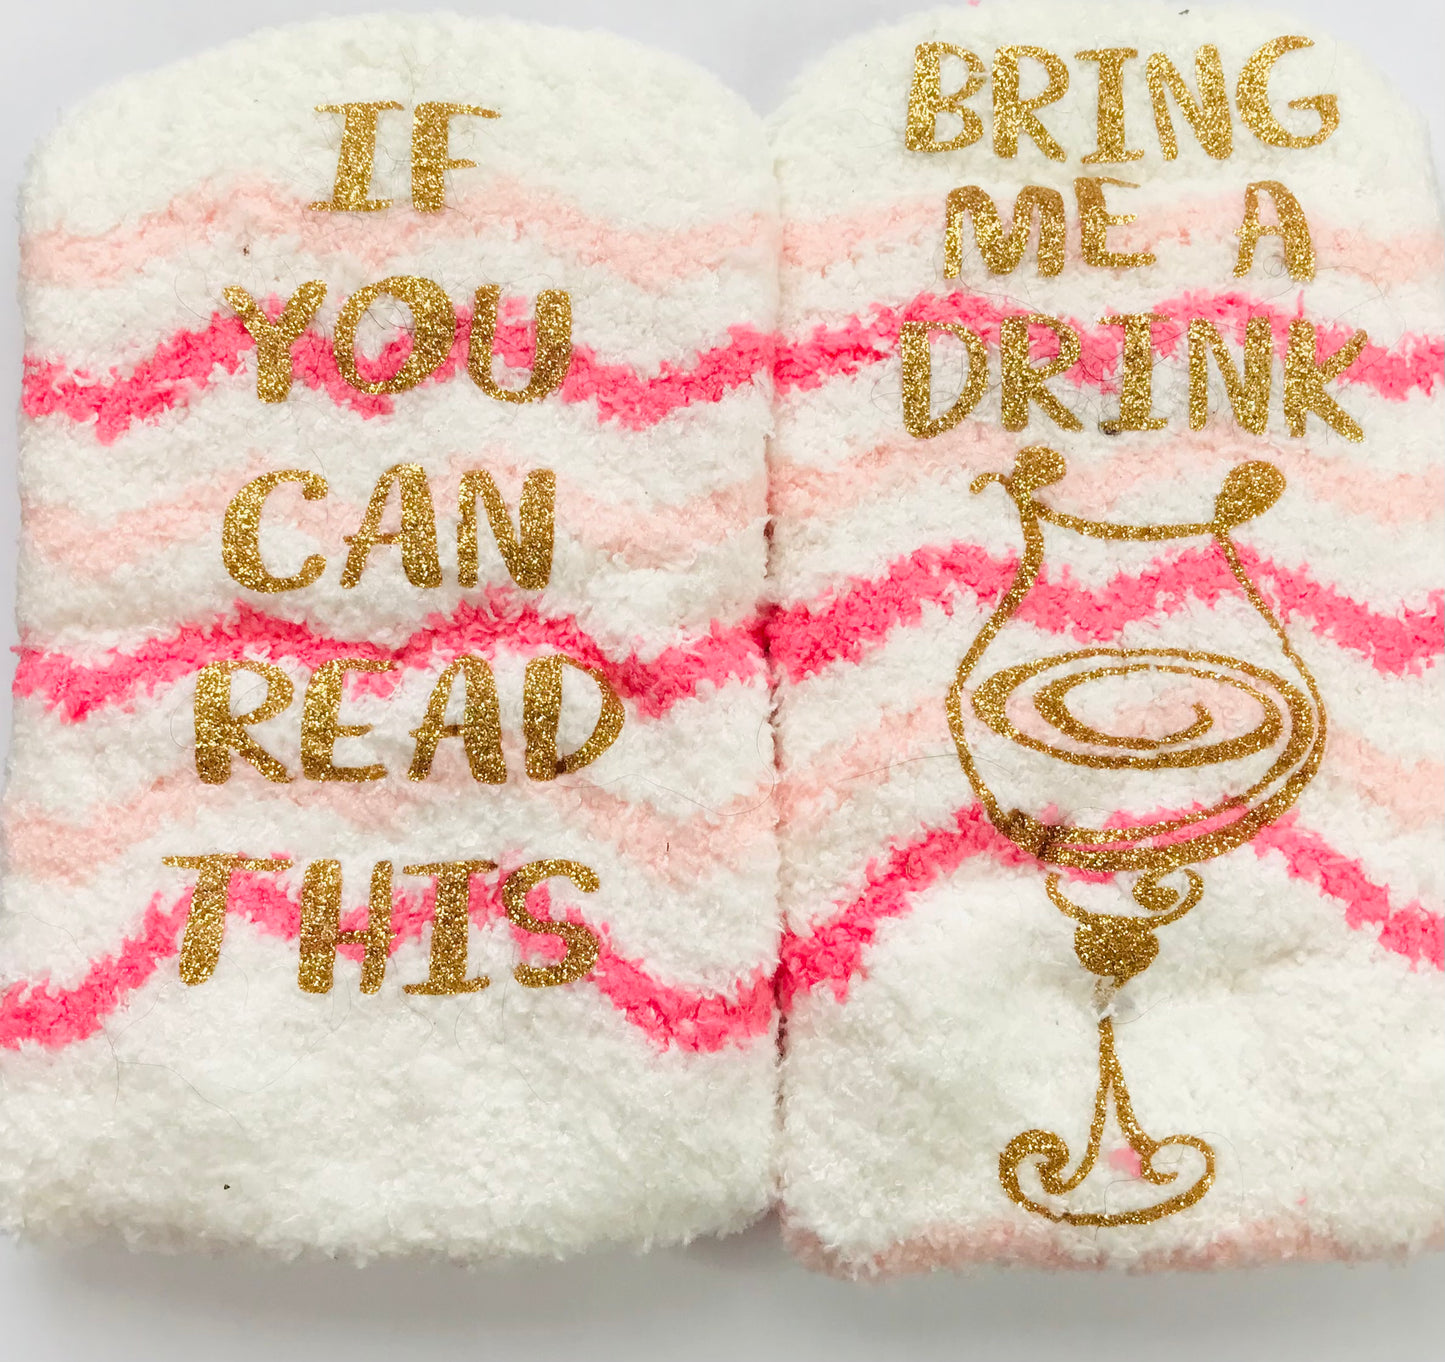 IF
YOU
CAN
READ
THIS
BRING
ME A
DRINK